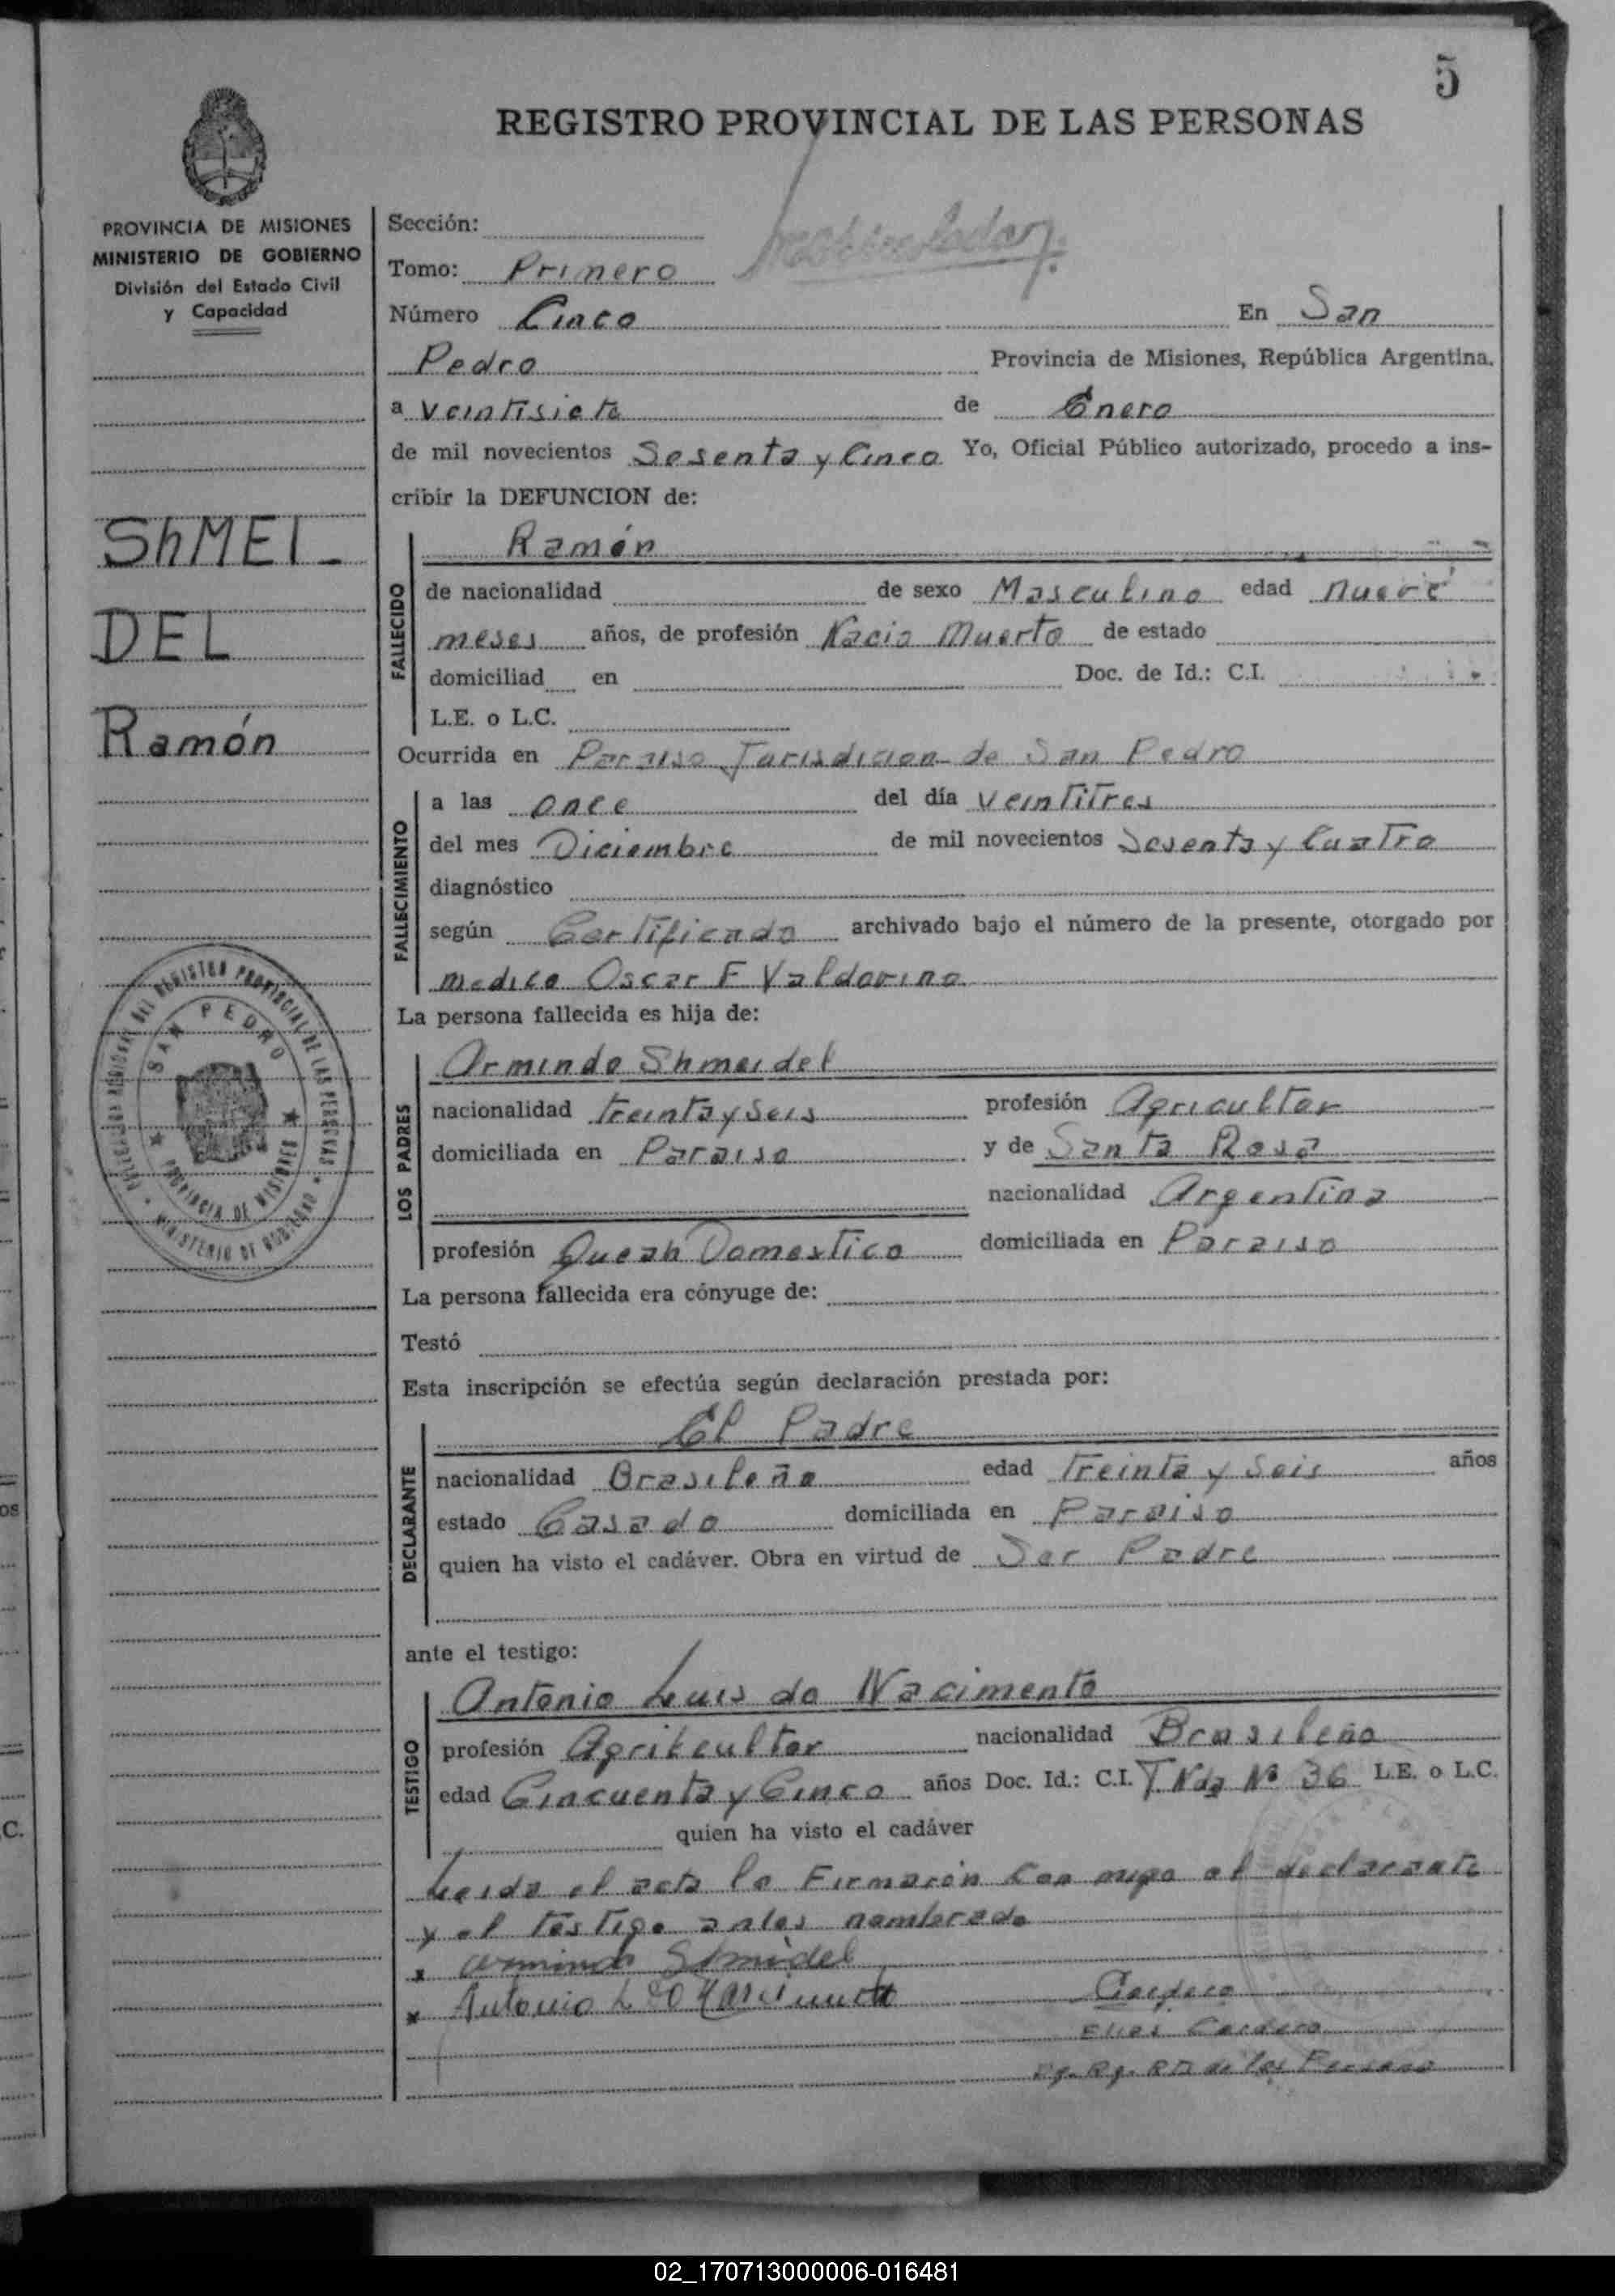 5
REGISTRO PROVINCIAL DE LAS PERSONAS
PROVINCIA DE MISIONES
MINISTERIO DE GOBIERNO
División del Estado Civil
y Capacidad
ShMEI-
DEL
Ramón
DELEGACION REGIONAL DEL REGISTRO PROVINCIAL DE LAS PERSONAS
SAN PEDRO
PROVINCIA DE MISIONES
MINISTERIO DE GOBIERNO
Sección:
Tomo: Primero
Número Cinco En San
Pedro Provincia de Misiones, República Argentina.
a veintisiete de Enero
de mil novecientos Sesenta y Cinco Yo, Oficial Público autorizado, procedo a ins-
cribir la DEFUNCION de:
FALLECIDO
Ramón
de nacionalidad de sexo Masculino edad nueve
meses años, de profesión Nacio Muerto de estado
domiciliad en Doc. de Id.: C.I.
L.E. o L.C.
Ocurrida en Paraiso Jurisdicion de San Pedro
FALLECIMIENTO
a las once del día veintitres
del mes Diciembre de mil novecientos Sesenta y Cuatro
diagnóstico
según Certificado archivado bajo el número de la presente, otorgado por
medico Oscar F Valdovino
La persona fallecida es hija de:
LOS PADRES
Armindo Shmeidel
nacionalidad treinta y seis profesión Agricultor
domiciliada en Paraiso y de Santa Rosa
nacionalidad Argentina
profesión Domestico domiciliada en Paraiso
La persona fallecida era cónyuge de:
Testó
Esta inscripción se efectúa según declaración prestada por:
DECLARANTE
El Padre
nacionalidad Brasileño edad treinta y seis años
estado Casado domiciliada en Paraiso
quien ha visto el cadáver. Obra en virtud de Ser Padre
ante el testigo:
TESTIGO
Antonio Luis do Nacimento
profesión Agrikcultor nacionalidad Brasileño
edad Cincuenta y Cinco años Doc. Id.: C.I. T. Nda Nº 36 L.E. o L.C.
quien ha visto el cadáver
Leida el acta la Firmarón Con migo el declarante
y el testigo antes nombrado
x armindo Smidel
x Antonio L do
Cardozo
Elias Cardozo
de las
02_170713000006-016481